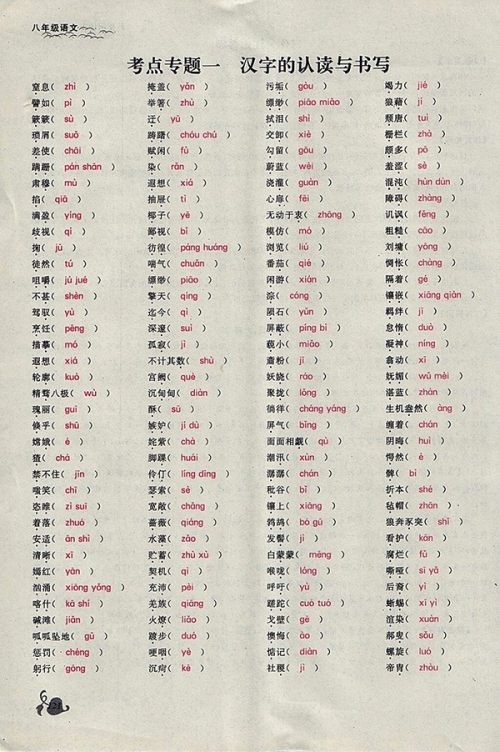 八年级语文
考点专题一 汉字的认读与书写
窒息( zhì )
譬如( pì )
簌簌( sù )
琐屑( suǒ )
差使( chāi )
蹒跚( pán shān )
肃穆( mù )
掐( qiā )
满盈( yíng )
歧视( qí )
掬( jū )
徒然( tú )
咀嚼( jǔ jué )
不甚( shèn )
驾驭( yù )
烹饪( pēng )
描摹( mó )
遐想( xiá )
轮廓( kuò )
精骛八极( wù )
瑰丽( guī )
倏乎( shū )
嫦娥( é )
猹( chá )
禁不住( jīn )
嗤笑( chī )
恣睢( zì suī )
着落( zhuó )
安适( ān shì )
清晰( xī )
嫣红( yān )
汹涌( xiōng yǒng )
喀什( kā shí )
碱滩( jiǎn )
呱呱坠地( gū )
惩罚( chéng )
躬行( gōng )
掩盖( yǎn )
举箸( zhù )
迂( yū )
踌躇( chóu chú )
赋闲( fù )
染( rǎn )
遐想( xiá )
抽屉( tì )
椰子( yē )
鄙视( bǐ )
彷徨( páng huáng )
喘气( chuǎn )
缥缈( piāo )
擎天( qíng )
迄今( qì )
深邃( suì )
孤寂( jì )
不计其数( shù )
宫阙( què )
沉甸甸( diàn )
酥( sū )
嫉妒( jí dù )
姹紫( chà )
脚踝( huái )
伶仃( líng dīng )
瑟索( sè )
宽敞( chǎng )
蔷薇( qiáng )
水藻( zǎo )
贮蓄( zhù xù )
契机( qì )
充沛( pèi )
羌族( qiāng )
火燎( liǎo )
踱步( duó )
哽咽( yè )
沉疴( kē )
污垢( gòu )
缥缈( piāo miǎo )
拭泪( shì )
交卸( xiè )
勾留( gōu )
蔚蓝( wèi )
浇灌( guàn )
心扉( fēi )
无动于衷( zhōng )
模仿( mó )
浏览( liú )
番茄( qié )
闲游( xián )
淙( cóng )
陨石( yǔn )
屏蔽( píng bì )
藐小( miǎo )
齑粉( jī )
妖娆( ráo )
聚拢( lǒng )
徜徉( cháng yáng )
屏气( bǐng )
面面相觑( qù )
潮汛( xùn )
潺潺( chán )
秕谷( bǐ )
镶上( xiāng )
鹁鸪( bó gū )
发髻( jì )
白蒙蒙( mēng )
喉咙( lóng )
呼吁( yù )
蹉跎( cuō tuó )
戈壁( gē )
懊悔( ào )
惦记( diàn )
社稷( jì )
竭力( jié )
狼藉( jí )
颓唐( tuí )
栅栏( zhà )
颇多( pō )
羞涩( sè )
混沌( hùn dùn )
障碍( zhàng )
讥讽( fěng )
粗糙( cāo )
刘墉( yōng )
惆怅( chàng )
隔着( gé )
镶嵌( xiāng qiàn )
羁绊( jī )
怠惰( duò )
凝神( níng )
翕动( xī )
妩媚( wǔ mèi )
湛蓝( zhàn )
生机盎然( àng )
缠着( chán )
阴晦( huì )
愕然( è )
髀( bì )
折本( shé )
毡帽( zhān )
狼奔豕突( shǐ )
看护( kān )
腐烂( fǔ )
嘶哑( sī yǎ )
后裔( yì )
蜥蜴( xī yì )
渲染( xuàn )
郝叟( sǒu )
螺旋( luó )
帝胄( zhòu )